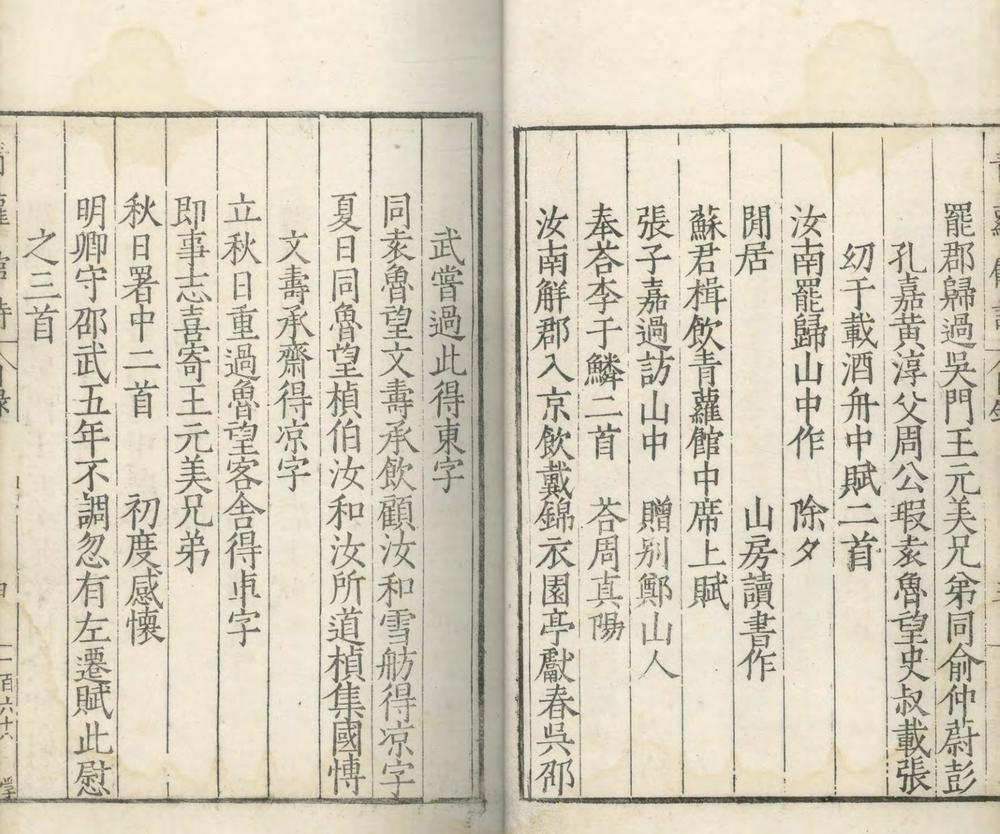 罷郡歸過吳門王元美兄弟同俞仲蔚彭
孔嘉黃淳父周公瑕袁魯望史叔載張
幼于載酒舟中賦二首
汝南罷歸山中作 除夕
閒居 山房讀書作
蘇君楫飲青蘿館中席上賦
張子嘉過訪山中 贈别鄭山人
奉荅李于鱗二首 荅周真陽
汝南解郡入京飲戴錦衣園亭獻春吳邵
武嘗過此得東字
同袁魯望文壽承飲顧汝和雪舫得凉字
夏日同魯望楨伯汝和汝所道楨集國慱
文壽承齋得凉字
立秋日重過魯望客舍得卓字
即事志喜寄王元美兄弟
秋日署中二首 初度感懷
明卿守邵武五年不調忽有左遷賦此慰
之三首